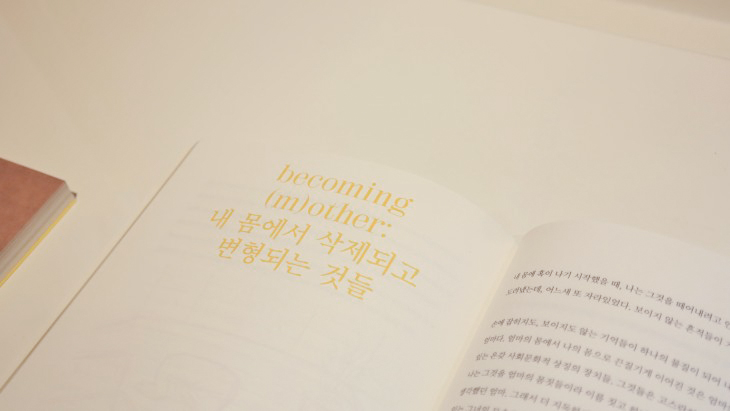 becoming
(m)other:
내 몸에서 삭제되고
변형되는 것들
내 몸에 혹이 나기 시작했을 때, 나는 그것을 떼어내려고
도려냈는데, 어느새 또 자라있었다. 보이지 않는 흔적들이
손에 잡히지도, 보이지도 않는 기억들이 하나의 물질이 되어
엄마다. 엄마의 몸에서 나의 몸으로 끈질기게 이어진 것은 엄마
있는 온갖 사회문화적 상징의 장치들. 그것들은
나는 그것을 엄마의 몸짓들이라 이름 짓고
생각했던 엄마. 그래서 더 지독한